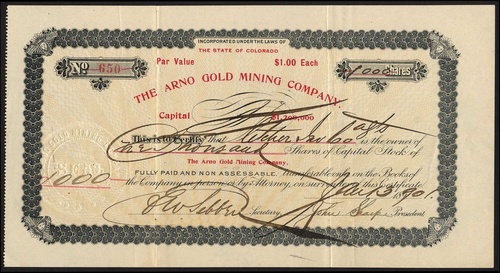 INCORPORATED UNDER THE LAWS OF
THE STATE OF COLORADO
No 650
Par Value $1.00 Each
1000 Shares
THE ARNO GOLD MINING COMPANY.
Capital $1,200,000
This is to Certify that is the owner of
One Thousand Shares of Capital Stock of
The Arno Gold Mining Company.
1000
FULLY PAID AND NON ASSESSABLE. Transferable only on the Books of
the Company in person or by Attorney, on surrender of this Certificate
Secretary John Sharp President